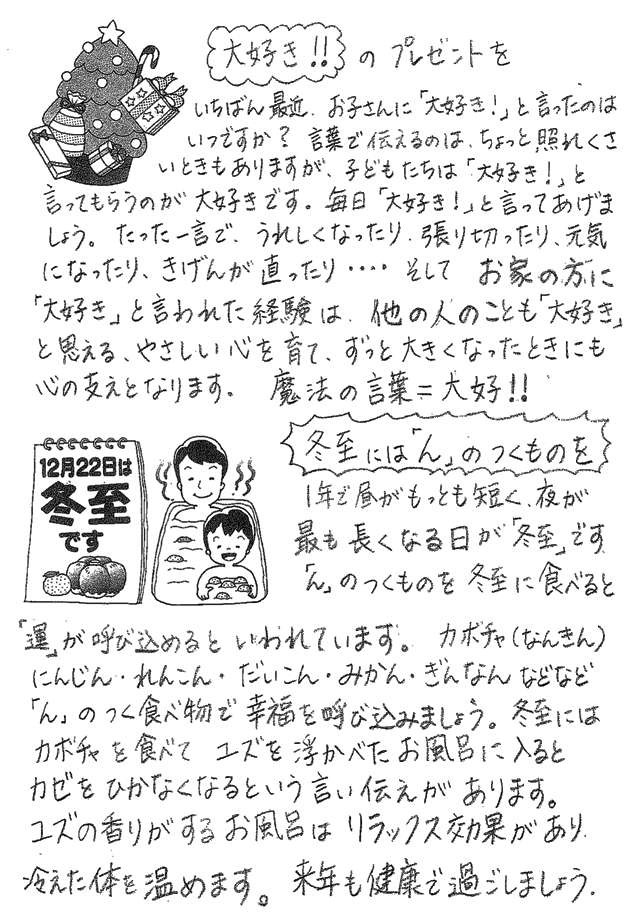 大好き!! の プレゼントを
いちばん最近、お子さんに「大好き!」と言ったのは
いつですか? 言葉で伝えるのは、ちょっと照れくさ
いときもありますが、子どもたちは「大好き!」と
言ってもらうのが大好きです。毎日「大好き!」と言ってあげま
しょう。たった一言で、うれしくなったり、張り切ったり、元気
になったり、きげんが直ったり・・・・ そして お家の方に
「大好き」と言われた経験は、他の人のことも「大好き」
と思える、やさしい心を育て、ずっと大きくなったときにも
心の支えとなります。 魔法の言葉=大好!!
冬至には「ん」のつくものを
12月22日は
冬至
です
1年で昼がもっとも短く、夜が
最も長くなる日が「冬至」です
「ん」のつくものを冬至に食べると
「運」が呼び込めるといわれています。 カボチャ(なんきん)
にんじん・れんこん・だいこん・みかん・ぎんなんなどなど
「ん」のつく食べ物で幸福を呼び込みましょう。冬至には
カボチャを食べて ユズを浮かべたお風呂に入ると
カゼをひかなくなるという言い伝えがあります。
ユズの香りがするお風呂はリラックス効果があり
冷えた体を温めます。来年も健康で過ごしましょう.